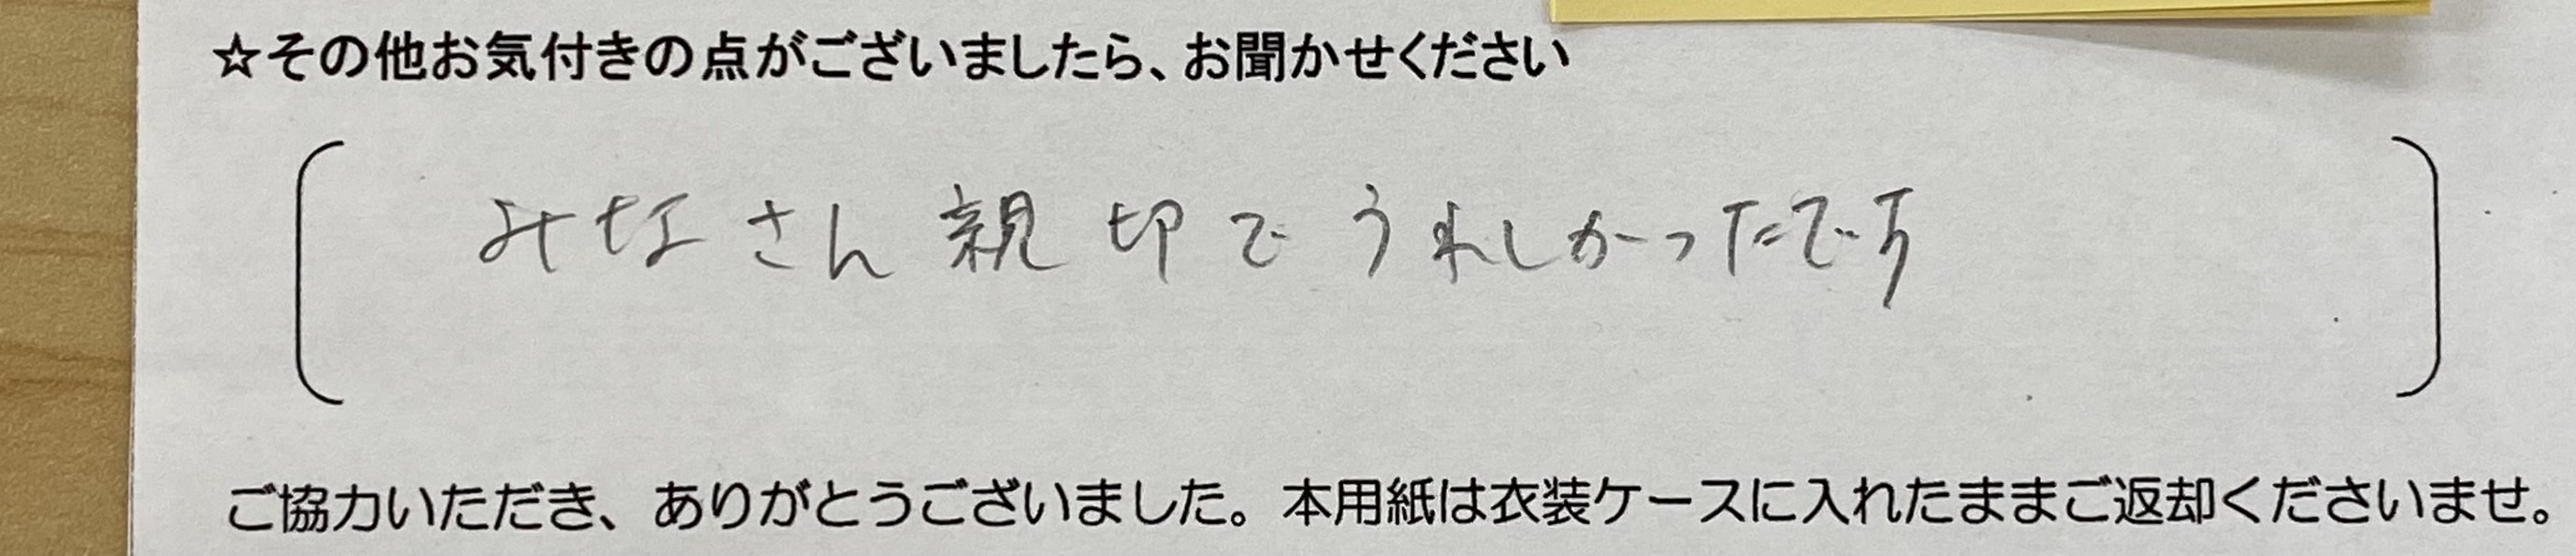 ☆その他お気付きの点がございましたら、お聞かせください
みなさん親切でうれしかったです
ご協力いただき、ありがとうございました。本用紙は衣装ケースに入れたままご返却くださいませ。